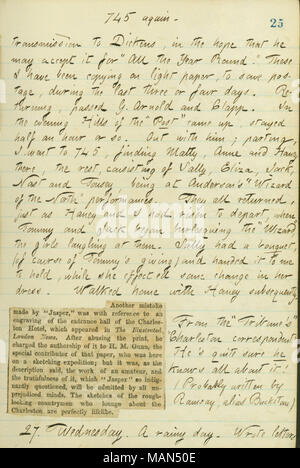 745 again.
25
transmission to Dickens, in the hope that he
may accept it for "All the Year Round." These
I have been copying on light paper, to save pos-
tage, during the last three or four days. Re-
turning, passed G. Arnold and Clapp. In
the evening Hills of the "Post" came up, stayed
half an hour or so. Out with him; parting,
I went to 745, finding Matty, Anne and Haney
there, the rest, consisting of Sally, Eliza, Jack,
Nast and Tousey being at Anderson's "Wizard
of the North" performances. They all returned,
just as Haney and I had risen to depart, when
Tommy and Jack began burlesquing the "Wizard,"
the girls laughing at them. Sally had a bouquet,
(of course of Tommy's giving) and handed it to me
to hold, while she effected some change in her
dress. Walked home with Haney subsequently.
Another mistake
made by "Jasper," was with reference to an
engraving of the entrance hall of the Charles-
ton Hotel, which appeared in The Illustrated
London News. After abusing the print, he
charged the authorship of it to H. M. Gunn, the
special contributor of that paper, who was here
on a sketching expedition; but it was, as the
description said, the work of an amateur, and
the truthfulness of it, which "Jasper" so indig-
nantly questioned, will be admitted by all un-
prejudiced minds. The sketches of the rough-
looking countrymen who lounge about the
Charleston are perfectly lifelike.
From the "Tribune's"
Charleston correspondent.
He's quite sure he
knows all about it!
(Probably written by
Ramsay, alias Buckstone)
27. Wednesday. A rainy day. Wrote letters
alamy
Image ID: MAN50E
www.alamy.com